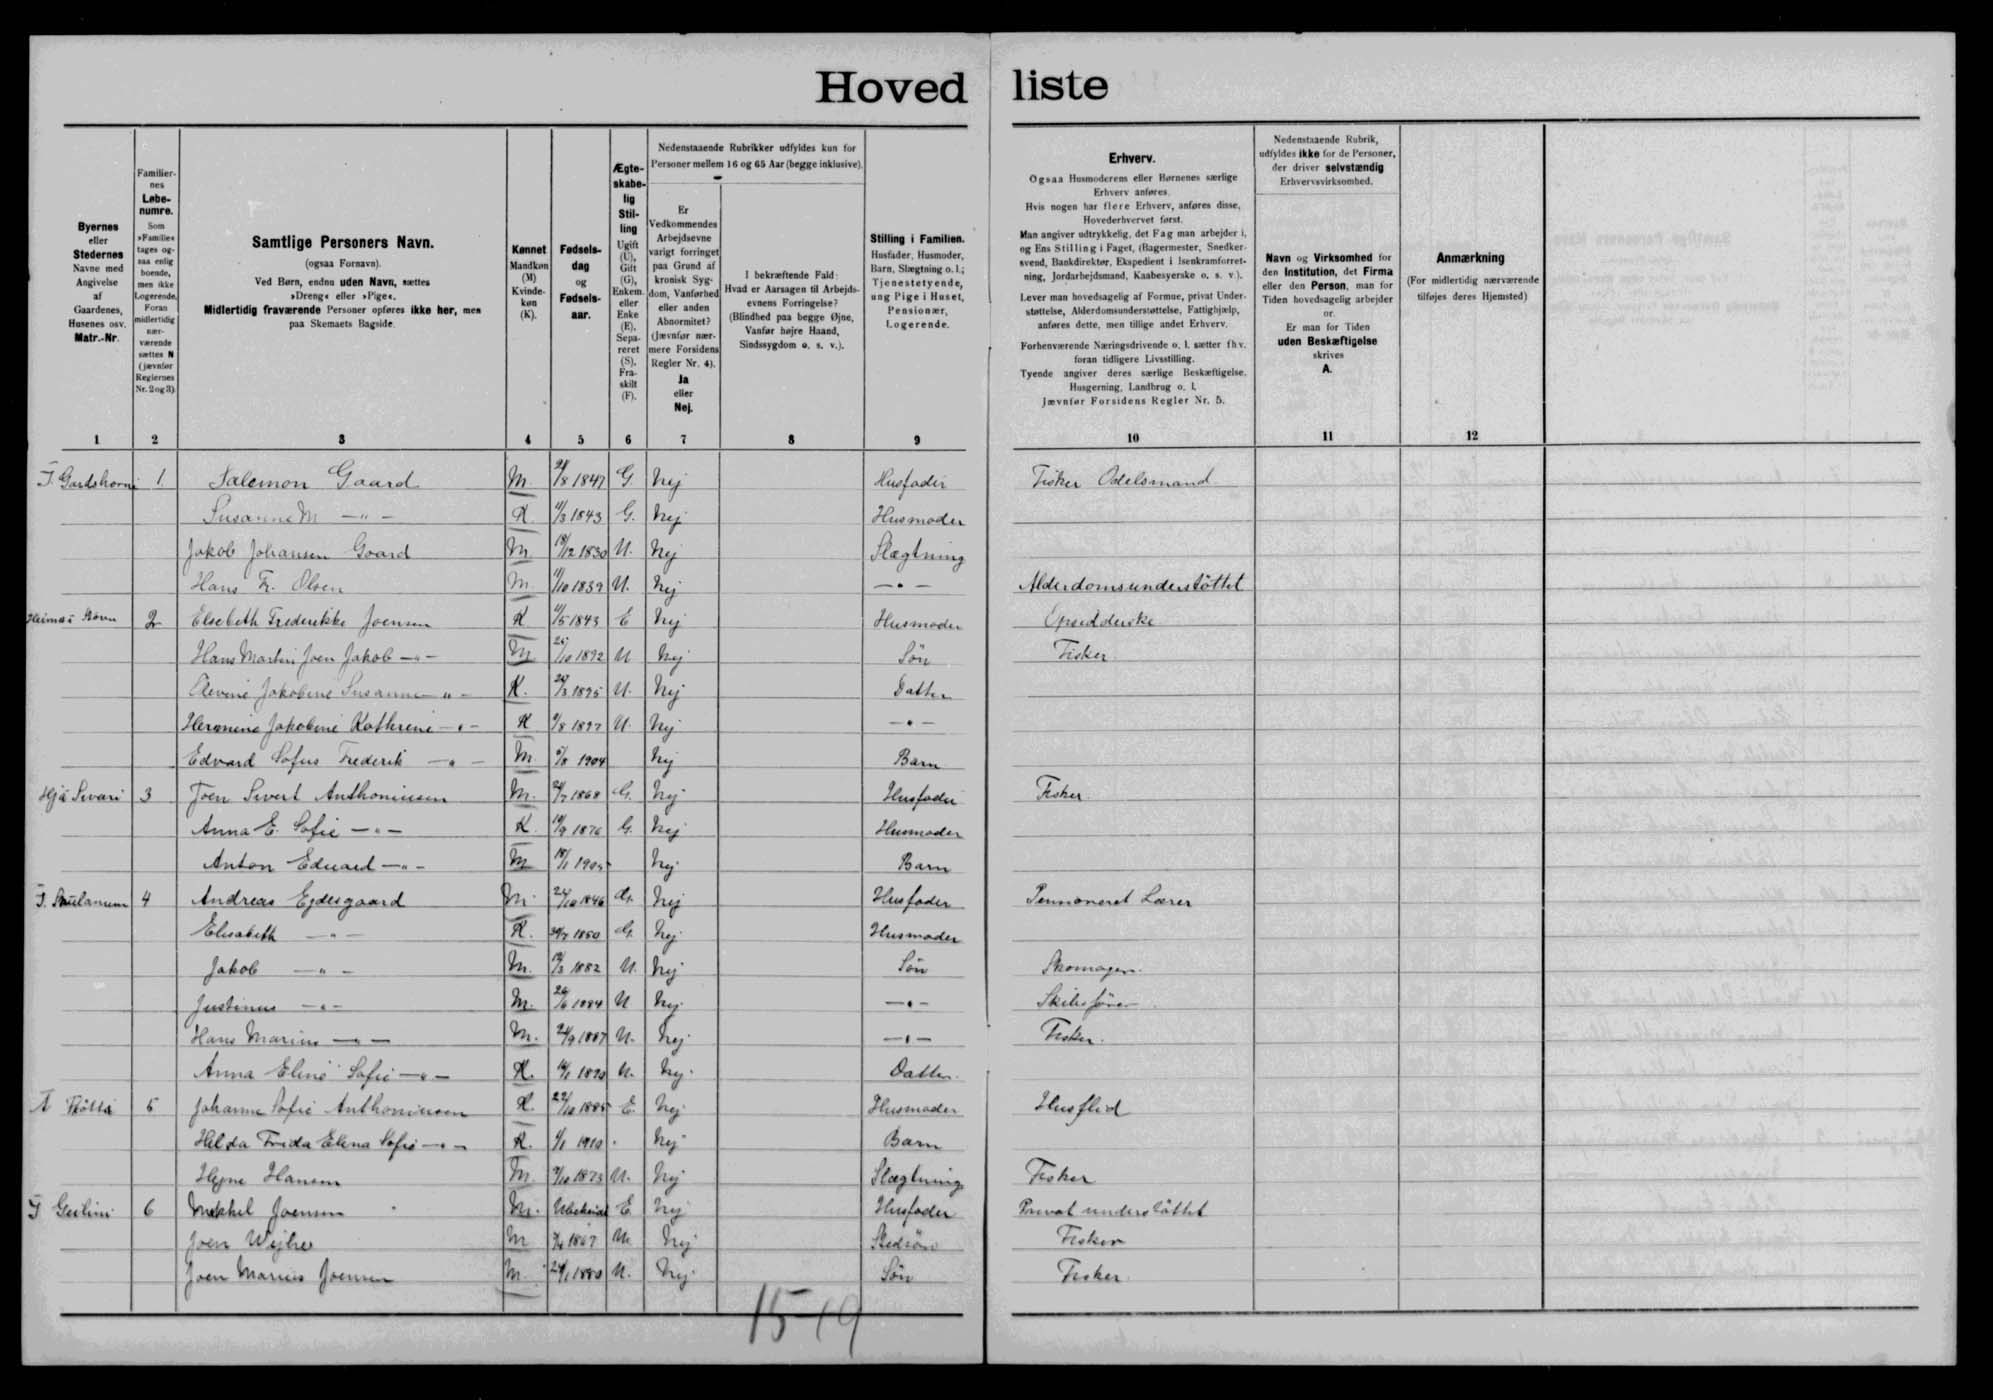 Hovedliste
Byernes eller Stedernes Navne med Angivelse af Gaardenes, Husenes osv. Matr.-Nr.
Familiernes Løbenumre. Som »Familie« tages ogsaa enlig boende, men ikke Logerende. Foran midlertidig nærværende sættes N (jævnfør Reglernes Nr. 2 og 3).
Samtlige Personers Navn.
(ogsaa Fornavn).
Ved Børn, endnu uden Navn, sættes »Dreng« eller »Pige«.
Midlertidig fraværende Personer opføres ikke her, men paa Skemaets Bagside.
Kønnet Mandkøn (M) Kvindekøn (K).
Fødselsdag og Fødselsaar.
Ægteskabelig Stilling Ugift (U), Gift (G), Enkem. eller Enke (E), Separeret (S), Fraskilt (F).
Nedenstaaende Rubrikker udfyldes kun for Personer mellem 16 og 65 Aar (begge inklusive).
Er Vedkommendes Arbejdsevne varigt forringet paa Grund af kronisk Sygdom, Vanførhed eller anden Abnormitet? (Jævnfør nærmere Forsidens Regler Nr. 4). Ja eller Nej.
I bekræftende Fald: Hvad er Aarsagen til Arbejdsevnens Forringelse? (Blindhed paa begge Øjne, Vanfør højre Haand, Sindssygdom o. s. v.).
Stilling i Familien. Husfader, Husmoder, Barn, Slægtning o. l.; Tjenestetyende, ung Pige i Huset, Pensionær, Logerende.
Erhverv.
Ogsaa Husmoderens eller Børnenes særlige Erhverv anføres.
Hvis nogen har flere Erhverv, anføres disse, Hovederhvervet først.
Man angiver udtrykkelig, det Fag man arbejder i, og Ens Stilling i Faget, (Bagermester, Snedkersvend, Bankdirektør, Ekspedient i Isenkramforretning, Jordarbejdsmand, Kaabesyerske o. s. v.).
Lever man hovedsagelig af Formue, privat Understøttelse, Alderdomsunderstøttelse, Fattighjælp, anføres dette, men tillige andet Erhverv.
Forhenværende Næringsdrivende o. l. sætter fhv. foran tidligere Livsstilling.
Tyende angiver deres særlige Beskæftigelse. Husgerning, Landbrug o. l.
Jævnfør Forsidens Regler Nr. 5.
Nedenstaaende Rubrik, udfyldes ikke for de Personer, der driver selvstændig Erhvervsvirksomhed.
Navn og Virksomhed for den Institution, det Firma eller den Person, man for Tiden hovedsagelig arbejder or.
Er man for Tiden uden Beskæftigelse skrives A.
Anmærkning
(For midlertidig nærværende tilføjes deres Hjemsted)
1 2 3 4 5 6 7 8 9 10 11 12
1 Salemon Gaard M. 1847 G. Nej Husfader Fisker Odelsmand
Susanne M — " — K. 1843 G. Nej Husmoder
Jakob Johansen Gaard M. 1830 U. Nej Slægtning
Hans Fr. Olsen M. 1839 U. Nej — " — Alderdomsunderstøttet
2 Elsebeth Frederikke Joensen K 1843 E Nej Husmoder Opsidderske
Hans Martin Joen Jakob — " — M 1892 U Nej Søn Fisker
Elevine Jakobine Susanne — " — K. 1895 U. Nej Datter
Hermine Jakobine Kathrine — " — K 1897 U. Nej — " —
Edvard Sofus Frederik — " — M 1904 Nej Barn
Hjá Sivari 3 Joen Sivert Anthoniusen M. 1868 G. Nej Husfader Fisker
Anna E. Sofie — " — K. 1876 G. Nej Husmoder
Anton Eduard — " — M 1905 Nej Barn
4 Andreas Ejdesgaard M. 1846 G. Nej Husfader Pensioneret Lærer
Elisabeth — " — K. 1850 G. Nej Husmoder
Jakob — " — M. 1882 U. Nej Søn Skomager.
Justinus — " — M. 1884 U Nej — " — Skibsfører
Hans Marius — " — M. 1887 U. Nej — " — Fisker.
Anna Eline Sofie — " — K. 1890 U. Nej Datter.
5 Johanne Sofie Anthoniusen K. 1885 E. Nej Husmoder Husflid
Hilda Frida Elena Sofie — " — K. 1910 Nej Barn
Hejne Hansen M. 1873 U. Nej Slægtning Fisker
6 Mikkel Joensen M. Ubekendt E Nej Husfader Privat understøttet
Joen Wejhe M 1867 U. Nej Stedsøn Fisker
Joen Marius Joensen M. 1880 U. Nej Søn Fisker.
15-19